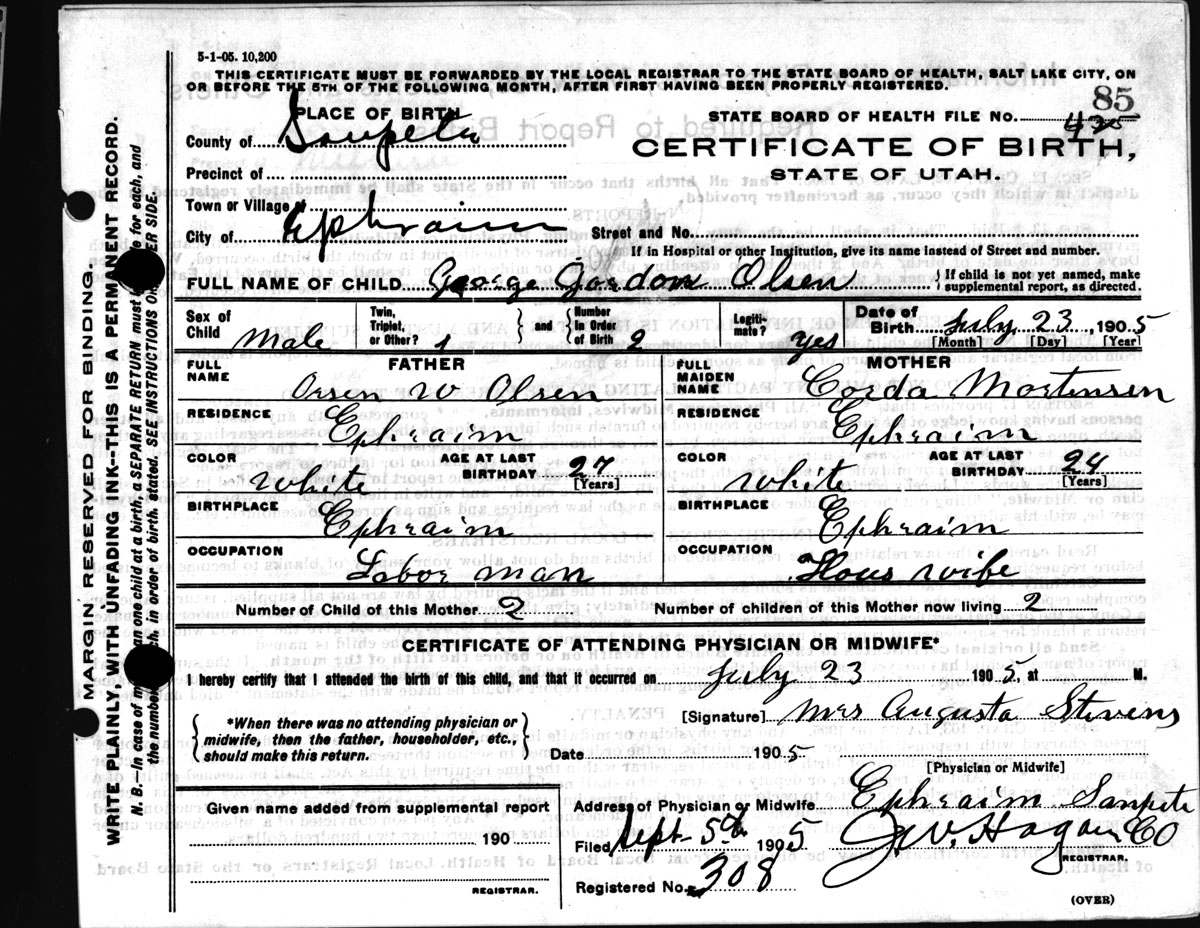 5-1-05. 10,200
THIS CERTIFICATE MUST BE FORWARDED BY THE LOCAL REGISTRAR TO THE STATE BOARD OF HEALTH, SALT LAKE CITY, ON
OR BEFORE THE 5TH OF THE FOLLOWING MONTH, AFTER FIRST HAVING BEEN PROPERLY REGISTERED.
85
PLACE OF BIRTH
STATE BOARD OF HEALTH FILE NO.
County of Sanpete
CERTIFICATE OF BIRTH,
Precinct of
STATE OF UTAH.
Town or Village of
City of Ephraim Street and No.
If in Hospital or other Institution, give its name instead of Street and number.
FULL NAME OF CHILD George Gordon Olsen { If child is not yet named, make
supplemental report, as directed.
Sex of Child Male Twin, Triplet, or Other? 1 } and { Number in Order of Birth 2 Legiti-mate? yes Date of Birth July 23, 1905
[Month] [Day] [Year]
FATHER MOTHER
FULL NAME Orson W Olsen FULL MAIDEN NAME Corda Mortensen
RESIDENCE Ephraim RESIDENCE Ephraim
COLOR White AGE AT LAST BIRTHDAY 27 [Years] COLOR White AGE AT LAST BIRTHDAY 24 [Years]
BIRTHPLACE Ephraim BIRTHPLACE Ephraim
OCCUPATION Labor man OCCUPATION Hous wife
Number of Child of this Mother 2 Number of children of this Mother now living 2
CERTIFICATE OF ATTENDING PHYSICIAN OR MIDWIFE*
I hereby certify that I attended the birth of this child, and that it occurred on July 23 1905, at M.
{ *When there was no attending physician or
midwife, then the father, householder, etc.,
should make this return. }
[Signature] Mrs Augusta Stevens
Date 1905
[Physician or Midwife]
Given name added from supplemental report
190
REGISTRAR.
Address of Physician or Midwife Ephraim Sanpete Co
Filed Sept. 5th 1905 J.V. Hagan
REGISTRAR.
Registered No. 308
(OVER)
MARGIN RESERVED FOR BINDING.
WRITE PLAINLY, WITH UNFADING INK--THIS IS A PERMANENT RECORD.
N. B.—In case of more than one child at a birth, a SEPARATE RETURN must be made for each, and
the number of each, in order of birth, stated. SEE INSTRUCTIONS ON OTHER SIDE.